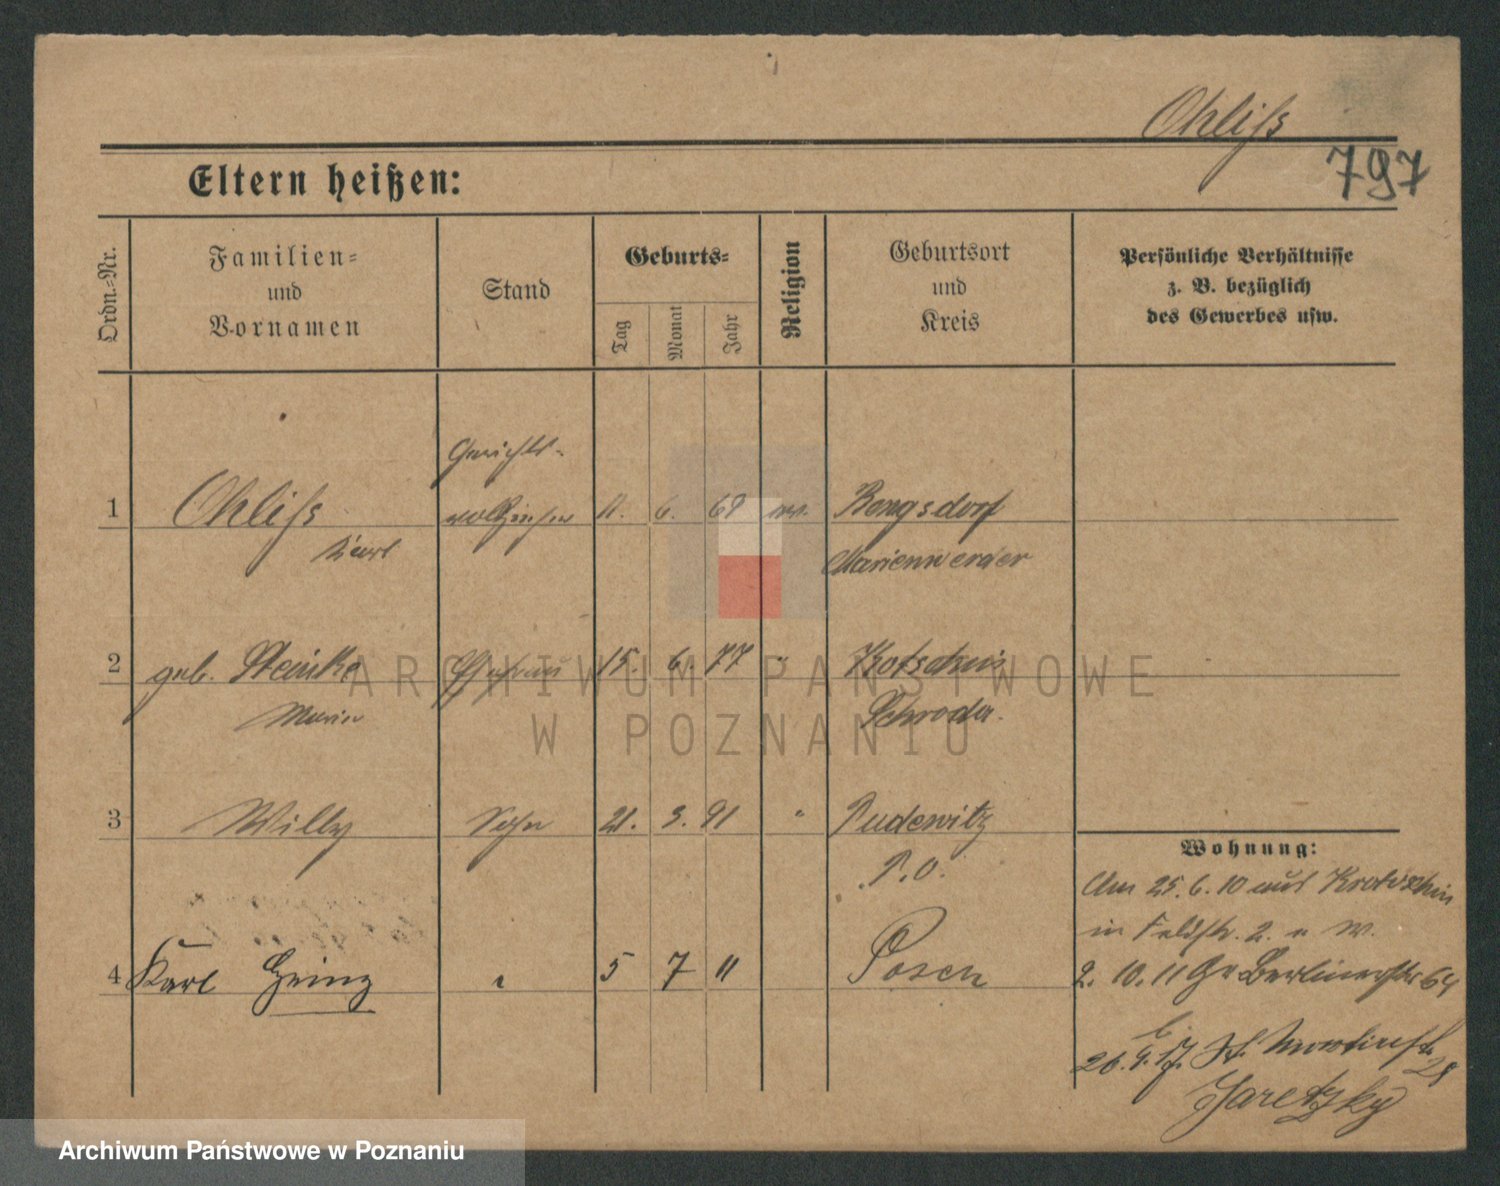 Ohliſs
797
Eltern heißen:
Ordn.=Nr.
Familien=
und
Vornamen
Stand
Geburts=
Tag
Monat
Jahr
Religion
Geburtsort
und
Kreis
Persönliche Verhältnisse
z. B. bezüglich
des Gewerbes usw.
Gerichts-
1 Ohliſs vollzieher 11. 6. 69 ev. Bengsdorf
Karl Marienwerder
2 geb. Steinke Ehefrau 15. 6. 77 " Krotschin
Maria Schroda.
3 Willy Sohn 21. 3. 91 " Pudewitz
P. O.
4 Karl Heinz " 5 7 11 Posen
Wohnung:
Am 25. 6. 10 aus Krotoschin
in Feldstr. 2. b. W.
2. 10. 11 Gr Berlinerstr 64
b.
26. 9. 17. St. Martinstr. 28
Jaretzky
ARCHIWUM PAŃSTWOWE
W POZNANIU
Archiwum Państwowe w Poznaniu